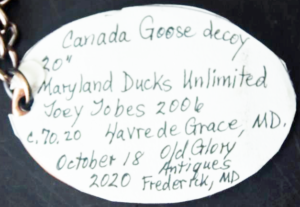 Canada Goose decoy
20"
Maryland Ducks Unlimited
Joey Jobes 2006
c.70.20 Havre de Grace, MD.
October 18 Old Glory
Antiques
2020 Frederick, MD